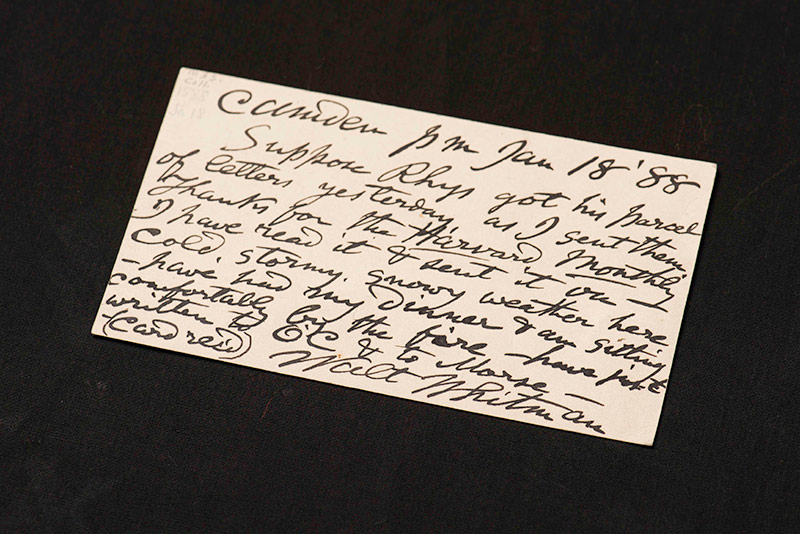 Camden pm Jan 18 '88
Suppose Rhys got his parcel
of letters yesterday, as I sent them
Thanks for the Harvard Monthly
I have read it & sent it on —
Cold stormy snowy weather here
— have had my dinner & am sitting
comfortably by the fire — have just
written to O'C & to Morse —
(card rec'd) Walt Whitman